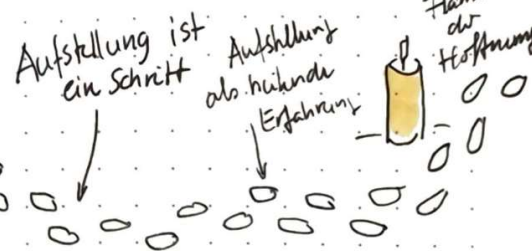 Aufstellung ist
ein Schritt
Aufstellung
als heilende
Erfahrung
der
Hoffnung